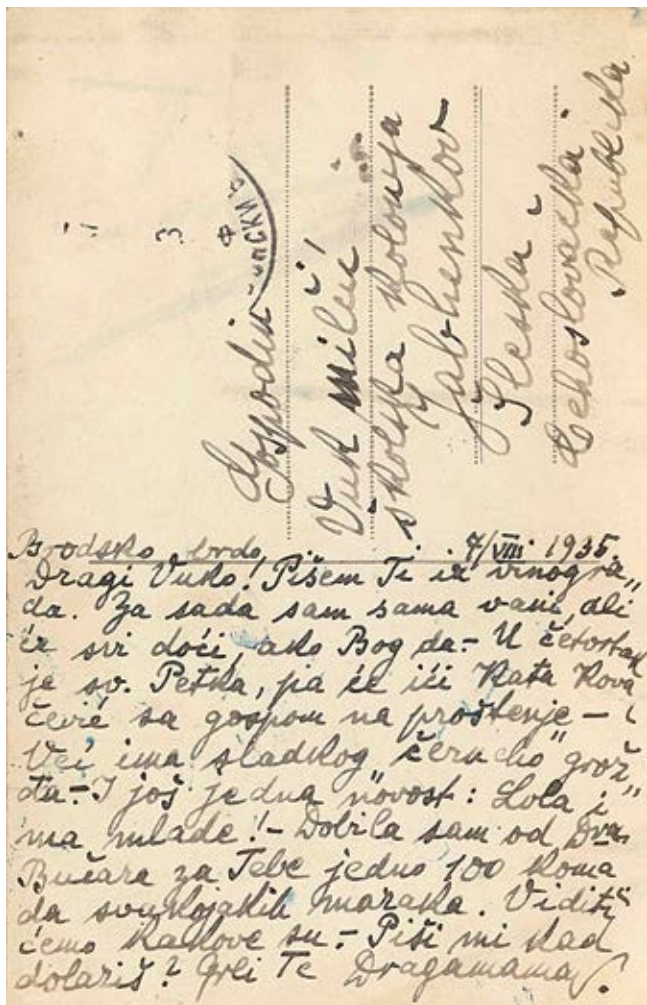 Gospodin
Vuk Milčić
školska kolonija
Jablunkov
Šleska
Čehoslovačka
Republika
Brodsko brdo, 7/VIII 1935.
Dragi Vuko! Pišem Ti iz vinogra„
da. Za sada sam sama vani, ali
će svi doći, ako Bog da.- U četvrtak
je sv. Petka, pa će ići Kata Kova
čević sa gospom na proštenje -
Već ima sladkog grož„
đa.- I još jedna novost: Lola i„
ma mlade!- Dobila sam od Dra
Bučara za Tebe jedno 100 koma
da svakojakih maraka. Vidit„
ćemo kakove su.- Piši mi kad
dolaziš? Grli Te Dragamama